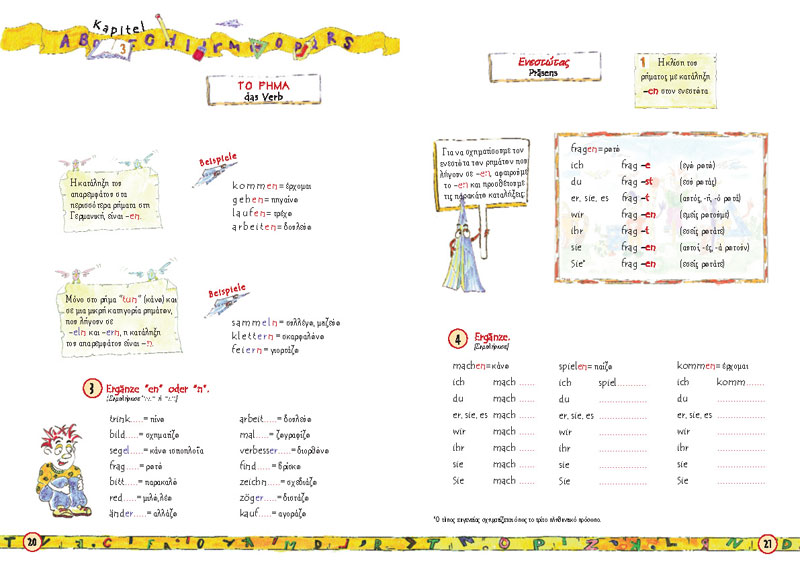 Kapitel
3
ΤΟ ΡΗΜΑ
das Verb
Η κατάληξη του
απαρεμφάτου στα
περισσότερα ρήματα στη
Γερμανική, είναι -en.
Beispiele
kommen = έρχομαι
gehen = πηγαίνω
laufen = τρέχω
arbeiten = δουλεύω
Μόνο στο ρήμα "tun" (κάνω) και
σε μια μικρή κατηγορία ρημάτων,
που λήγουν σε
-eln και -ern, η κατάληξη
του απαρεμφάτου είναι -n.
Beispiele
sammeln = συλλέγω, μαζεύω
klettern = σκαρφαλώνω
feiern = γιορτάζω
3 Ergänze "en" oder "n".
trink..... = πίνω
bild..... = σχηματίζω
segel..... = κάνω ιστιοπλοΐα
frag..... = ρωτώ
bitt..... = παρακαλώ
red..... = μιλώ, λέω
änder..... = αλλάζω
arbeit..... = δουλεύω
mal..... = ζωγραφίζω
verbesser..... = διορθώνω
find..... = βρίσκω
zeichn..... = σχεδιάζω
zöger..... = διστάζω
kauf..... = αγοράζω
20
Ενεστώτας
Präsens
1 Η κλίση του
ρήματος με κατάληξη
-en στον ενεστώτα
Για να σχηματίσουμε τον
ενεστώτα των ρημάτων που
λήγουν σε -en, αφαιρούμε
το -en και προσθέτουμε
τις παρακάτω καταλήξεις.
fragen = ρωτώ
ich frag -e (εγώ ρωτώ)
du frag -st (εσύ ρωτάς)
er, sie, es frag -t (αυτός, -ή, -ό ρωτά)
wir frag -en (εμείς ρωτούμε)
ihr frag -t (εσείς ρωτάτε)
sie frag -en (αυτοί, -ές, -ά ρωτούν)
Sie* frag -en (εσείς ρωτάτε)
4 Ergänze.
[Συμπλήρωσε]
machen = κάνω spielen = παίζω kommen = έρχομαι
ich mach ...... ich spiel............ ich komm.......
du mach ...... du ............ du ............
er, sie, es mach ...... er, sie, es ............ er, sie, es ............
wir mach ...... wir ............ wir ............
ihr mach ...... ihr ............ ihr ............
sie mach ...... sie ............ sie ............
Sie mach ...... Sie ............ Sie ............
*Ο τύπος ευγενείας σχηματίζεται όπως το τρίτο πληθυντικό πρόσωπο.
21